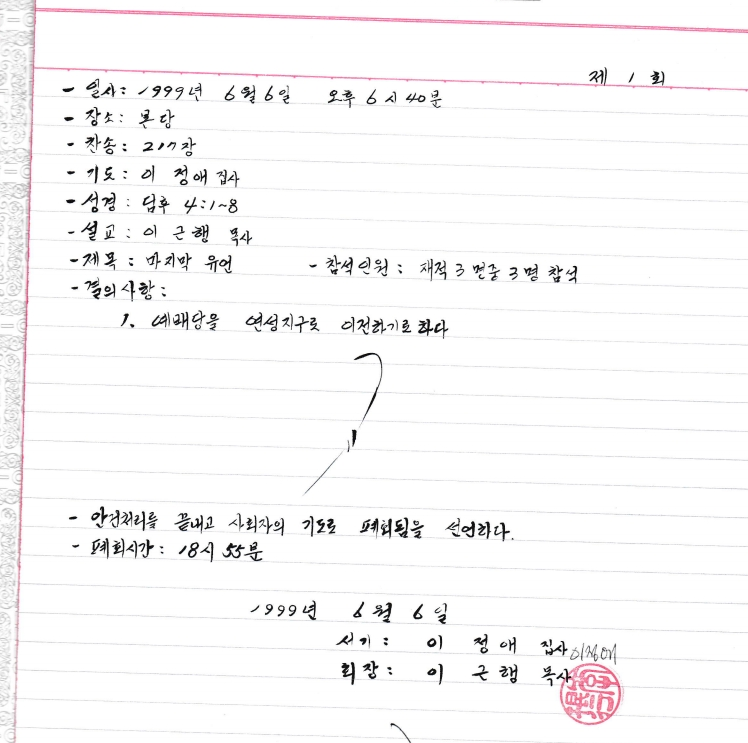 제 1 회
- 일시: 1999년 6월 6일 오후 6시 40분
- 장소: 본당
- 찬송: 217장
- 기도: 이 정애 집사
- 성경: 딤후 4:1~8
- 설교: 이 근행 목사
- 제목: 마지막 유언 - 참석인원: 재적 3명중 3명 참석
- 결의사항:
1. 예배당을 연성지구로 이전하기로 하다
- 안건처리를 끝내고 사회자의 기도로 폐회됨을 선언하다.
- 폐회시간: 18시 55분
1999년 6월 6일
서기: 이 정애 집사 이정애
회장: 이 근행 목사